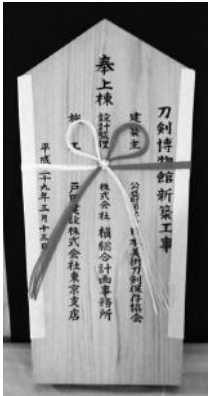 刀剣博物館新築工事
建築主 公益財団法人 日本美術刀剣保存協会
奉上棟
設計監理 株式会社 槇総合計画事務所
施工 戸田建設株式会社東京支店
平成二十九年三月十三日